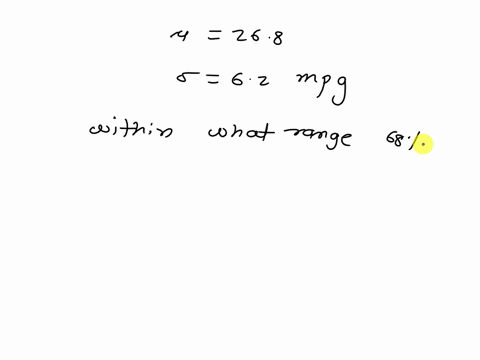 μ = 26.8
σ = 6.2 mpg
within what range 68%